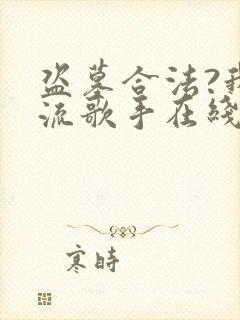 盗墓合法?我
流歌手在线
寒時